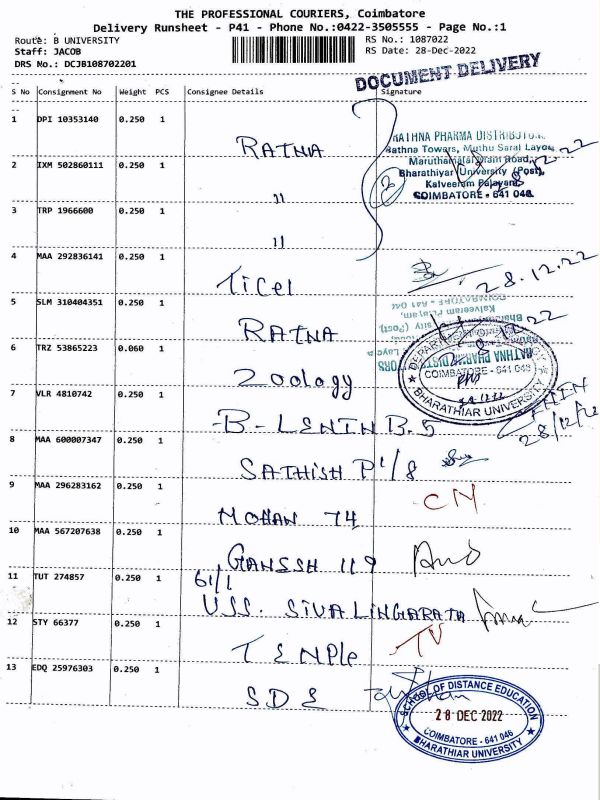 THE PROFESSIONAL COURIERS, Coimbatore
Delivery Runsheet - P41 - Phone No.:0422-3505555 - Page No.:1
Route: B UNIVERSITY RS No.: 1087022
Staff: JACOB RS Date: 28-Dec-2022
DRS No.: DCJB108702201
DOCUMENT DELIVERY
S No Consignment No Weight PCS Consignee Details Signature
1 DPI 10353140 0.250 1 RATNA
RATHNA PHARMA DISTRIBUTOR
Rathna Towers, Muthu Sarai Layout
Maruthamalai Main Road,
Bharathiyar University (Post),
Kalveeram Palayam,
COIMBATORE - 641 046.
28.12.22
2 IXM 502860111 0.250 1 "
3 TRP 1966600 0.250 1 "
4 MAA 292836141 0.250 1 TiCel 28.12.22
5 SLM 310404351 0.250 1 RATNA
6 TRZ 53865223 0.060 1 Zoology
COIMBATORE - 641 046
BHARATHIAR UNIVERSITY
7 VLR 4810742 0.250 1 B-LENIN B.5
28/12/22
8 MAA 600007347 0.250 1 SATHISH P1/8
9 MAA 296283162 0.250 1 MOHAN 74 CM
10 MAA 567207638 0.250 1 GANSSH 119
11 TUT 274857 0.250 1 61/1
USS. SIVALINGARAJA
12 STY 66377 0.250 1 TENPle TV
13 EDQ 25976303 0.250 1 SDE
SCHOOL OF DISTANCE EDUCATION
28 DEC 2022
COIMBATORE - 641 046
BHARATHIAR UNIVERSITY